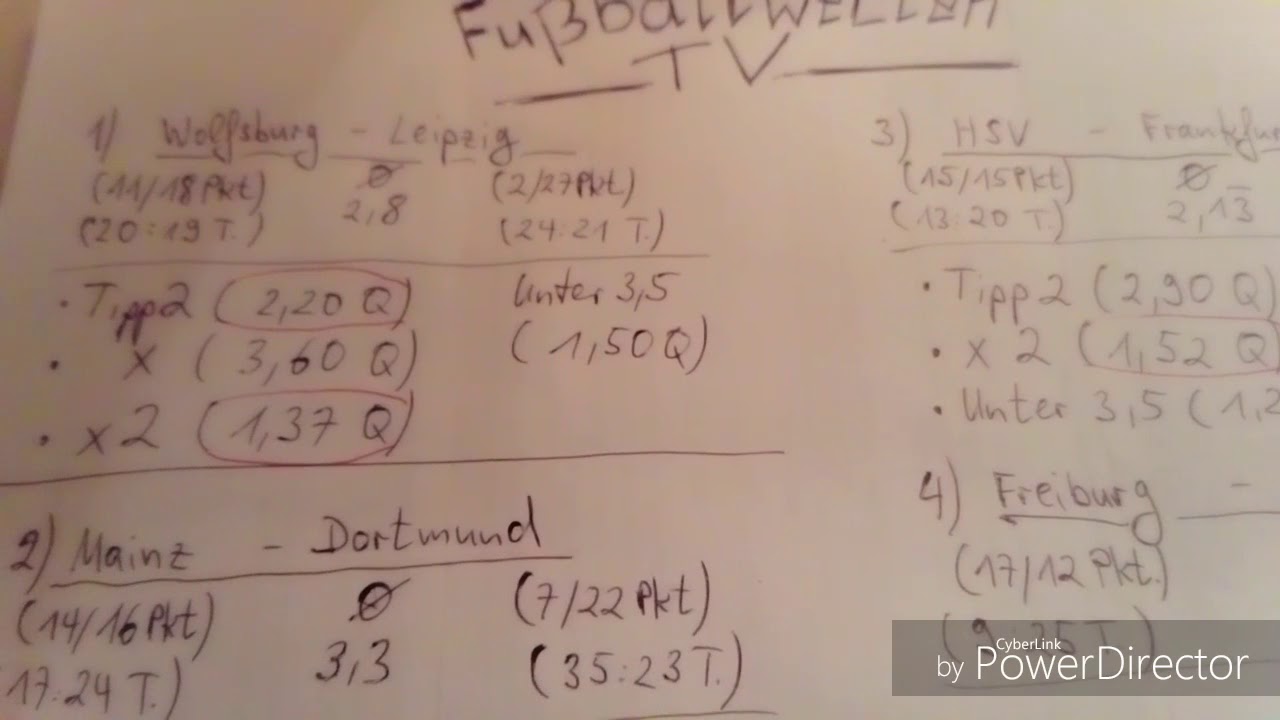 Fußballwetten
TV
1) Wolfsburg - Leipzig
(11/18 Pkt) Ø (2/27 Pkt)
(20:19 T.) 2,8 (24:21 T.)
• Tipp 2 (2,20 Q) Unter 3,5
• x (3,60 Q) (1,50 Q)
• x 2 (1,37 Q)
2) Mainz - Dortmund
(14/16 Pkt) Ø (7/22 Pkt)
17:24 T.) 3,3 (35:23 T.)
3) HSV - Frankfur
(15/15 Pkt) Ø
(13:20 T.) 2,13
• Tipp 2 (2,90 Q)
• x 2 (1,52 Q
• Unter 3,5 (1,2
4) Freiburg -
(17/12 Pkt.)
CyberLink
by PowerDirector